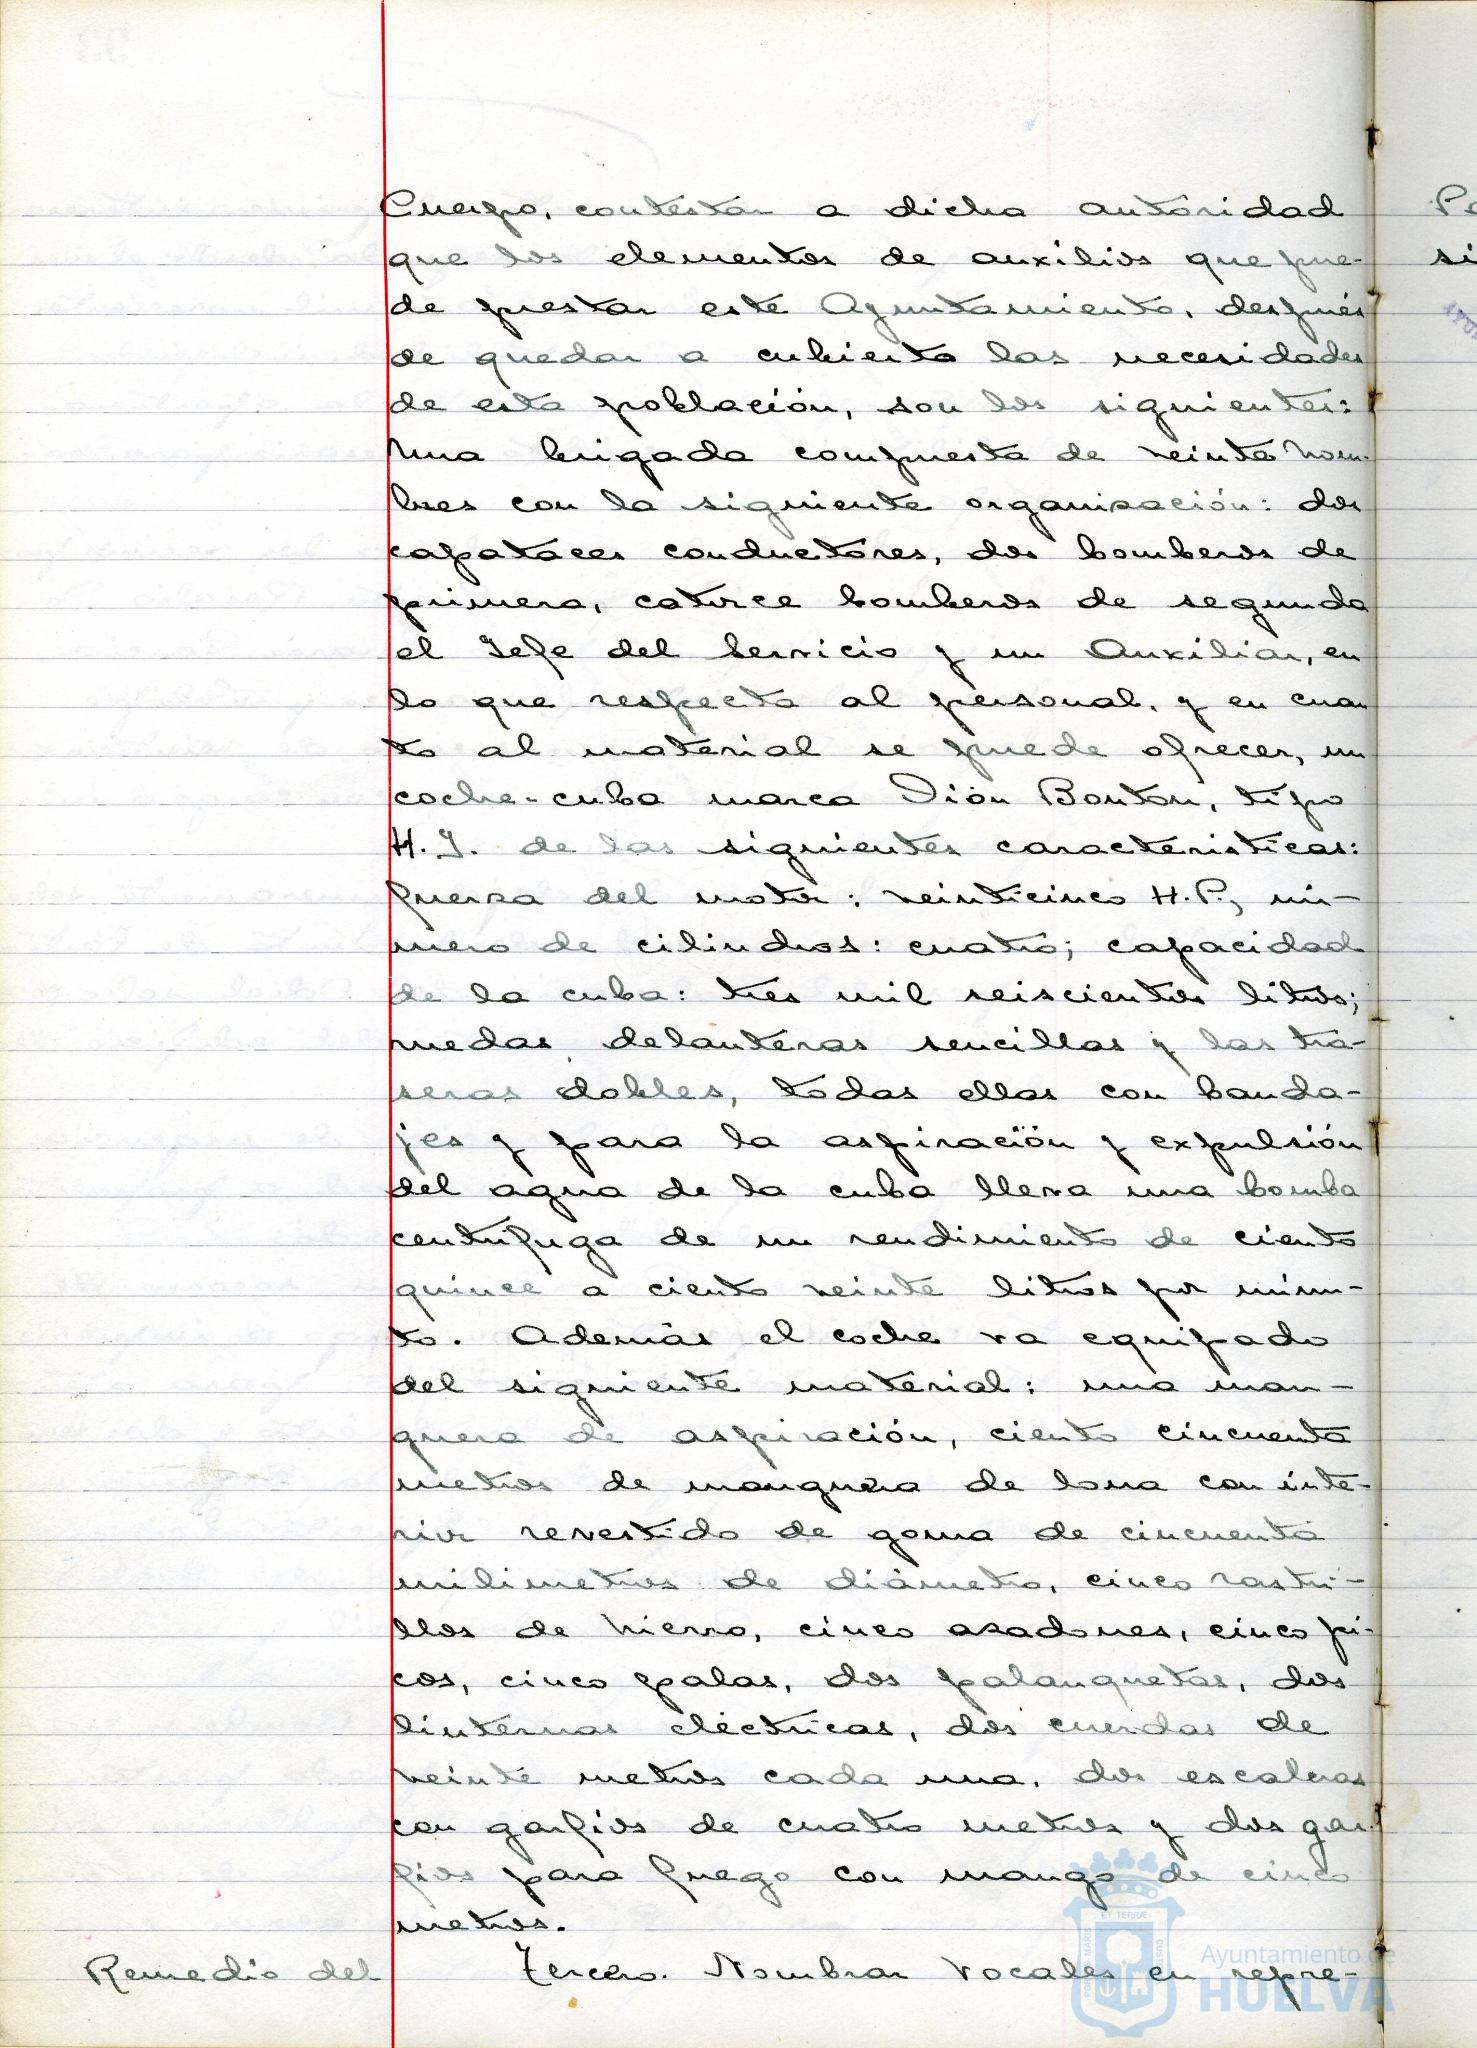 Cuerpo, contestar a dicha autoridad
que los elementos de auxilios que pue-
de prestar este Ayuntamiento, después
de quedar a cubierto las necesidades
de esta población, son los siguientes:
Una brigada compuesta de veinte hom-
bres con la siguiente organización: dos
capataces conductores, dos bomberos de
primera, catorce bomberos de segunda
el Jefe del Servicio y un Auxiliar, en
lo que respecta al personal, y en cuan
to al material se puede ofrecer, un
coche-cuba marca Dión Bouton, tipo
H.J. de las siguientes caracteristicas:
fuerza del motor: veinticinco H.P., nú-
mero de cilindros: cuatro; capacidad
de la cuba: tres mil seiscientos litros;
ruedas delanteras sencillas y las tra-
seras dobles, todas ellas con banda-
jes y para la aspiración y expulsión
del agua de la cuba lleva una bomba
centrífuga de un rendimiento de ciento
quince a ciento veinte litros por minu-
to. Además el coche va equipado
del siguiente material: una man-
guera de aspiración, ciento cincuenta
metros de manguera de lona con inte-
rior revestido de goma de cincuenta
milimetros de diámetro, cinco rastri-
llos de hierro, cinco azadones, cinco pi-
cos, cinco palas, dos palanquetas, dos
linternas eléctricas, dos cuerdas de
veinte metros cada una, dos escaleras
con garfios de cuatro metros y dos gar-
fios para fuego con mango de cinco
metros.
Remedio del Tercero. Nombrar Vocales en repre-
Ayuntamiento de
HUELVA